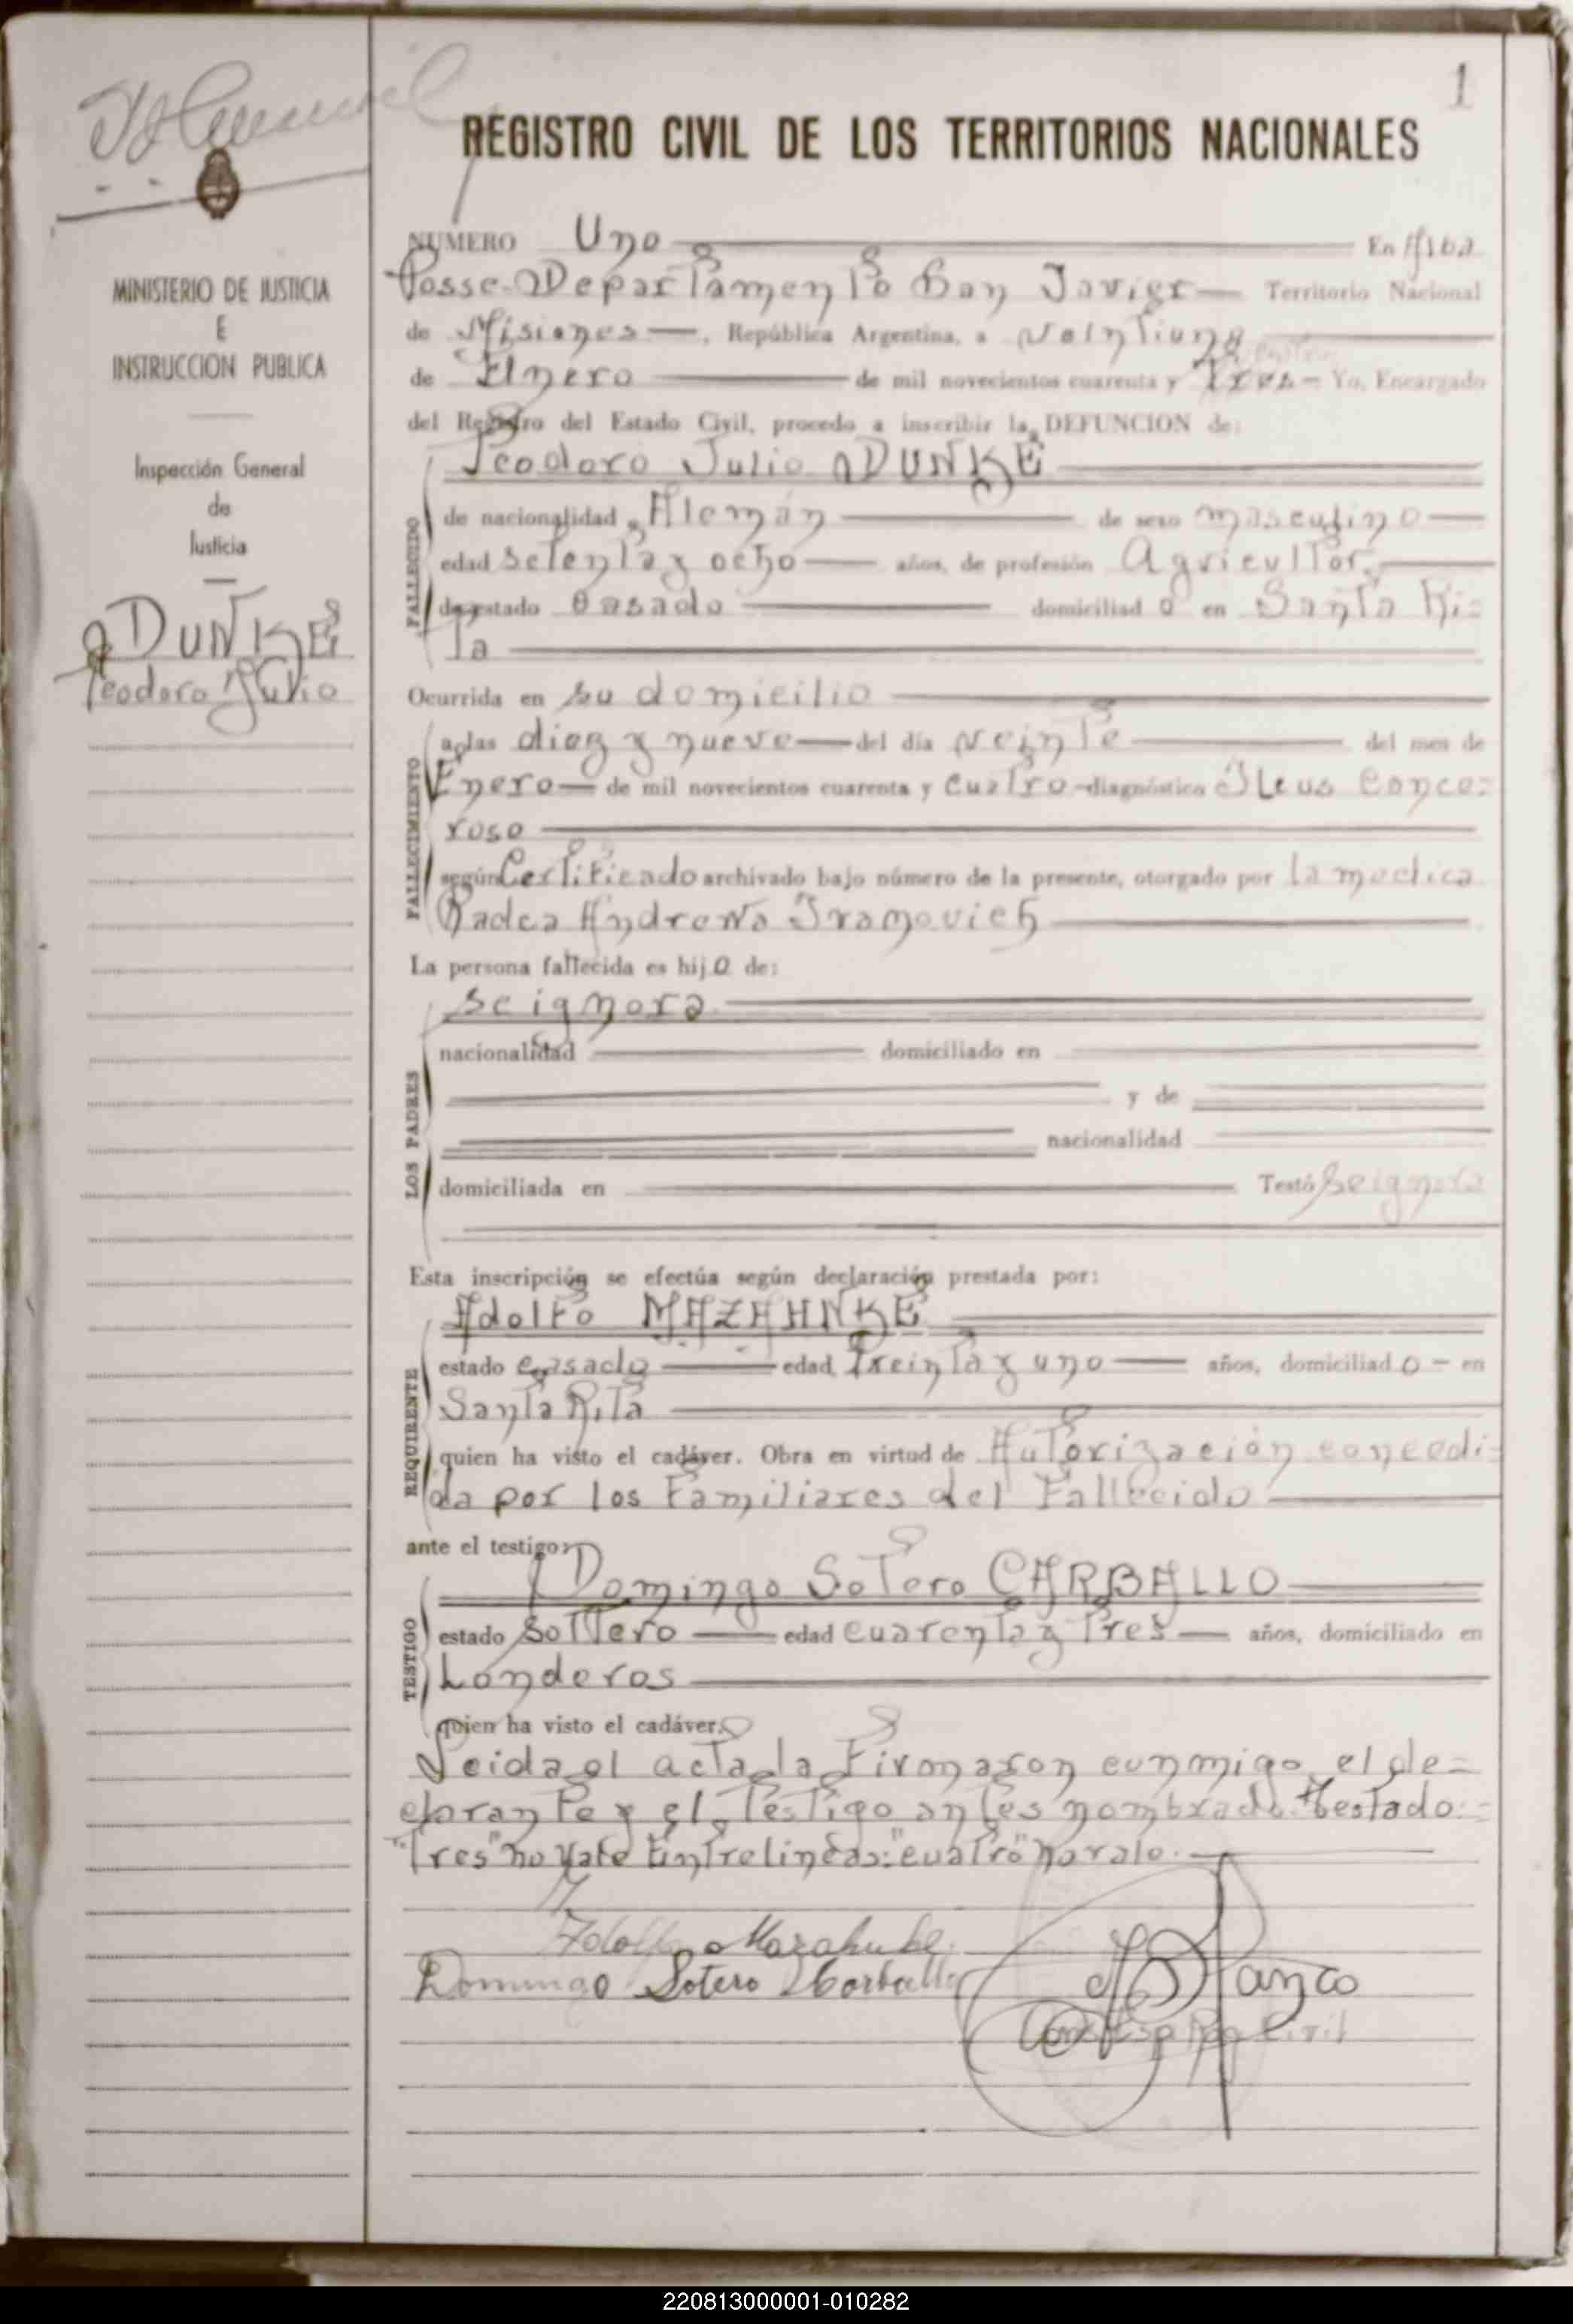 1
REGISTRO CIVIL DE LOS TERRITORIOS NACIONALES
MINISTERIO DE JUSTICIA
E
INSTRUCCION PUBLICA
Inspección General
de
Justicia
DUNKE
Teodoro Julio
NUMERO Uno En Alba
Posse-Departamento San Javier Territorio Nacional
de Misiones, República Argentina, a veintiuno
cuatro
de Enero de mil novecientos cuarenta y Tres Yo, Encargado
del Registro del Estado Civil, procedo a inscribir la DEFUNCION de:
Teodoro Julio DUNKE
FALLECIDO
de nacionalidad Alemán de sexo masculino
edad setenta y ocho años, de profesión Agricultor
de estado Casado domiciliado en Santa Ri-
ta
Ocurrida en su domicilio
FALLECIMIENTO
a las diez y nueve del día veinte del mes de
Enero de mil novecientos cuarenta y cuatro diagnóstico Ileus Cance-
roso
según Certificado archivado bajo número de la presente, otorgado por la medica
Radca Andrewa Ivanovich
La persona fallecida es hijo de:
se ignora
LOS PADRES
nacionalidad domiciliado en
y de
nacionalidad
domiciliada en Testó se ignora
Esta inscripción se efectúa según declaración prestada por:
Adolfo MAZAHNKE
REQUIRENTE
estado casado edad Treinta y uno años, domiciliado en
Santa Rita
quien ha visto el cadáver. Obra en virtud de Autorización concedi-
da por los Familiares del Fallecido
ante el testigo:
Domingo Sotero CARBALLO
TESTIGO
estado soltero edad cuarenta y tres años, domiciliado en
Londeros
quien ha visto el cadáver.
Leida el acta la Firmaron conmigo, el de-
clarante y el Testigo antes nombrado. Testado:
"Tres" no vale Entrelineas: "cuatro"
Adolfo Mazahnke
Domingo Sotero Carballo
220813000001-010282